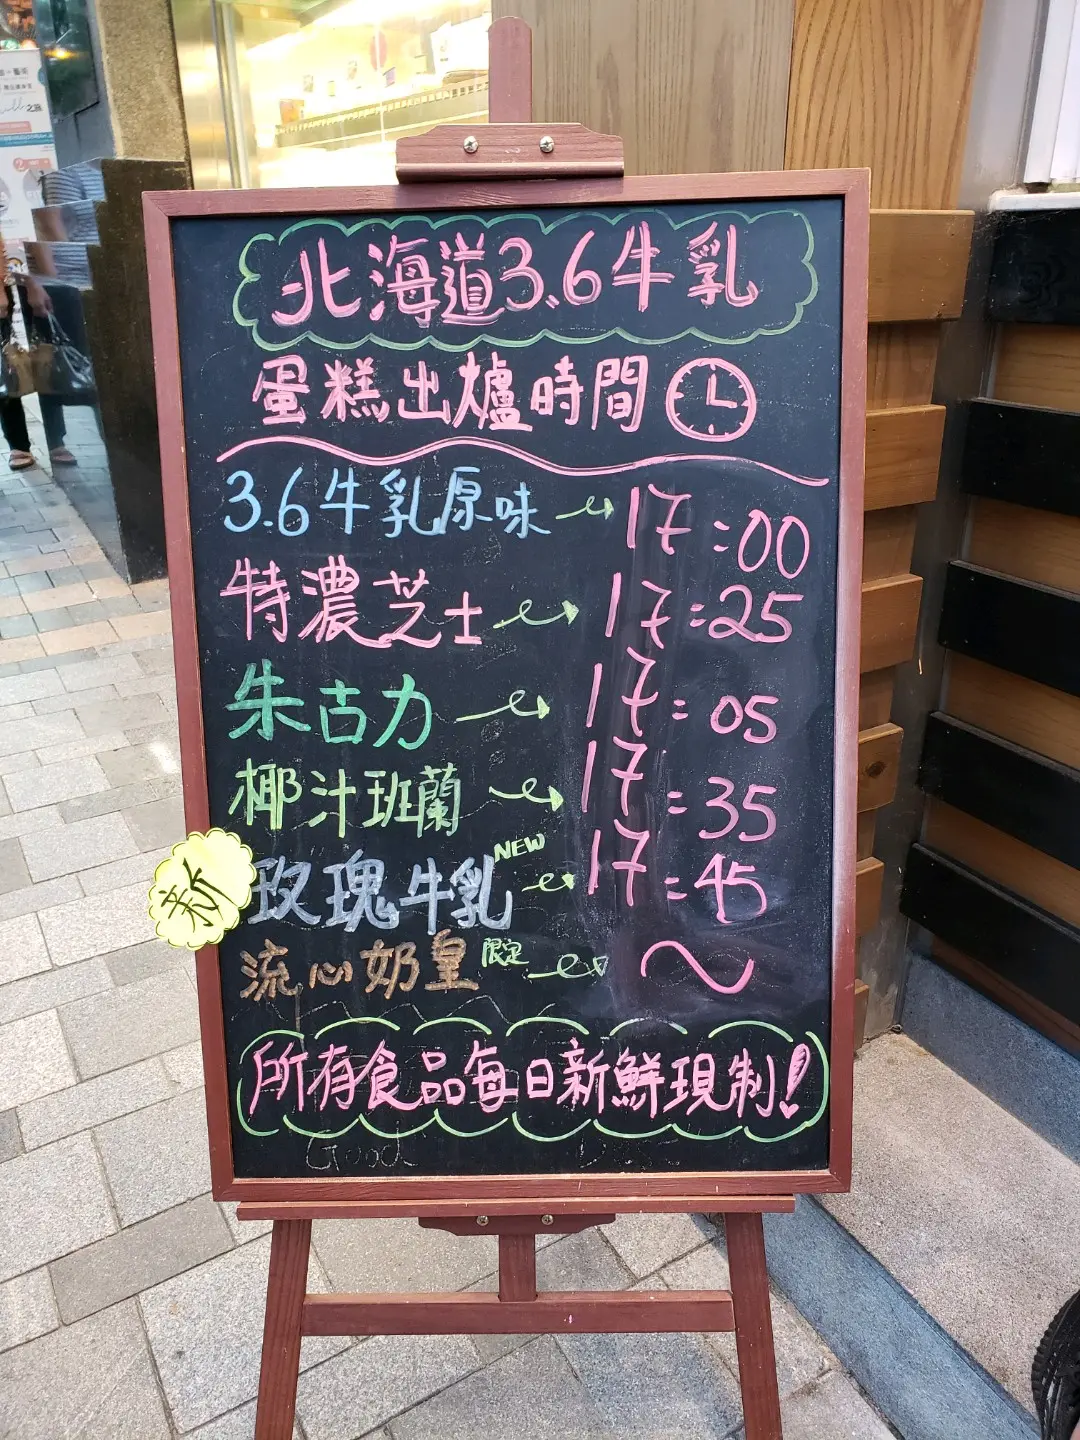 北海道3.6牛乳
蛋糕出爐時間
3.6牛乳原味 17:00
特濃芝士 17:25
朱古力 17:05
椰汁班蘭 17:35
新 玫瑰牛乳 NEW 17:45
流心奶皇 限定 ~
所有食品每日新鮮現制!
Good